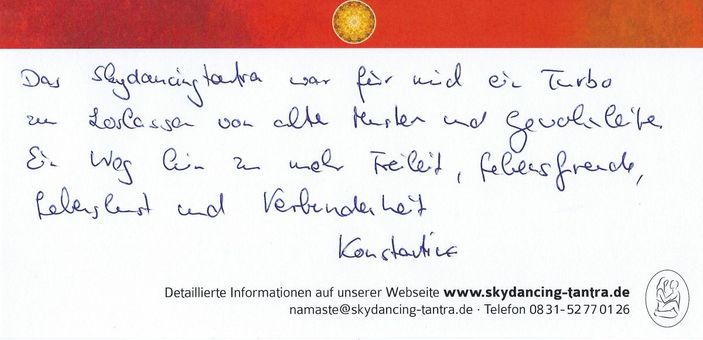 Das Skydancingtantra war für mich ein Turbo
zu Loslassen von alte Muster und Gewohnheiten
Ein Weg hin zu mehr Freiheit, Lebensfreude,
Lebenslust und Verbundenheit
Konstantin
Detaillierte Informationen auf unserer Webseite www.skydancing-tantra.de
namaste@skydancing-tantra.de · Telefon 08 31-52 77 01 26